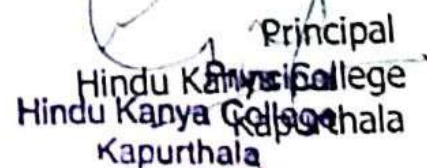 Principal
Hindu Kanya College
Kapurthala
Principal
Hindu Kanya College
Kapurthala